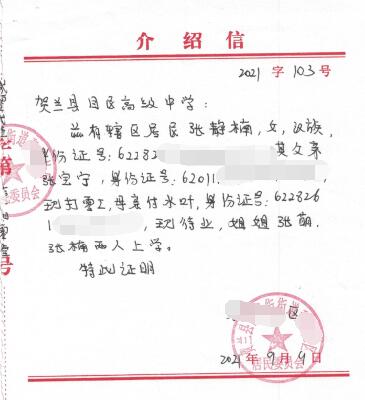 介绍信
2021 字 103 号
贺兰县回民高级中学：
兹有辖区居民张静楠，女，汉族，
身份证号：62282 其父亲
张宝宁，身份证号：62011
现打零工，母亲付水叶，身份证号：622826
1 ，现待业，姐姐张萌，
张楠两人上学。
特此证明
区
2021年9月9日
居民委员会